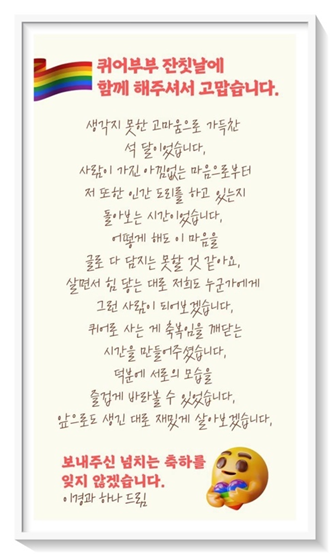 퀴어부부 잔칫날에
함께 해주셔서 고맙습니다.
생각지 못한 고마움으로 가득찬
석 달이었습니다,
사람이 가진 아낌없는 마음으로부터
저 또한 인간 도리를 하고 있는지
돌아보는 시간이었습니다,
어떻게 해도 이 마음을
글로 다 담지는 못할 것 같아요,
살면서 힘 닿는 대로 저희도 누군가에게
그런 사람이 되어보겠습니다,
퀴어로 사는 게 축복임을 깨닫는
시간을 만들어주셨습니다,
덕분에 서로의 모습을
즐겁게 바라볼 수 있었습니다,
앞으로도 생긴 대로 재밌게 살아보겠습니다,
보내주신 넘치는 축하를
잊지 않겠습니다.
이경과 하나 드림